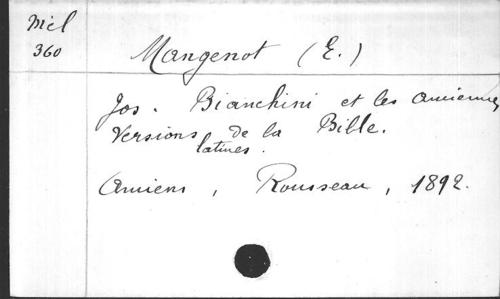 Mél
360
Mangenot (E.)
Jos. Bianchini et les anciennes
versions de la Bible.
latines.
Amiens, Rousseau, 1892.